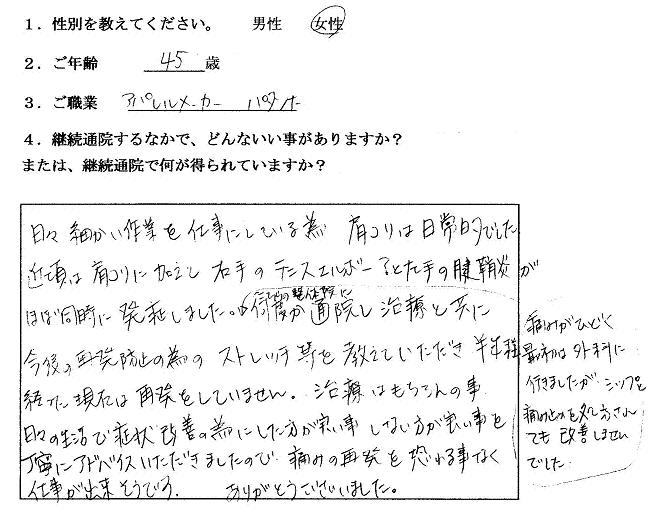 1．性別を教えてください。 男性 女性
2．ご年齢 45 歳
3．ご職業 アパレルメーカー パタンナー
4．継続通院するなかで、どんないい事がありますか？
または、継続通院で何が得られていますか？
日々細かい作業を仕事にしている為 肩コリは日常的でした
近頃は肩コリに加えて 右手のテニスエルボーと左手の腱鞘炎が
ほぼ同時に発症しました。何度か通院し治療と共に
こちらの整体院に
今後の再発防止の為のストレッチ等を教えていただき 半年程
経った現在は再発をしていません。治療はもちろんの事
日々の生活で症状改善の為にした方が良い事 しない方が良い事を
丁寧にアドバイスいただきましたので 痛みの再発を恐れる事なく
仕事が出来そうです。 ありがとうございました。
痛みがひどく
最初は外科に
行きましたが シップと
痛み止めを処方さん
ても 改善しません
でした